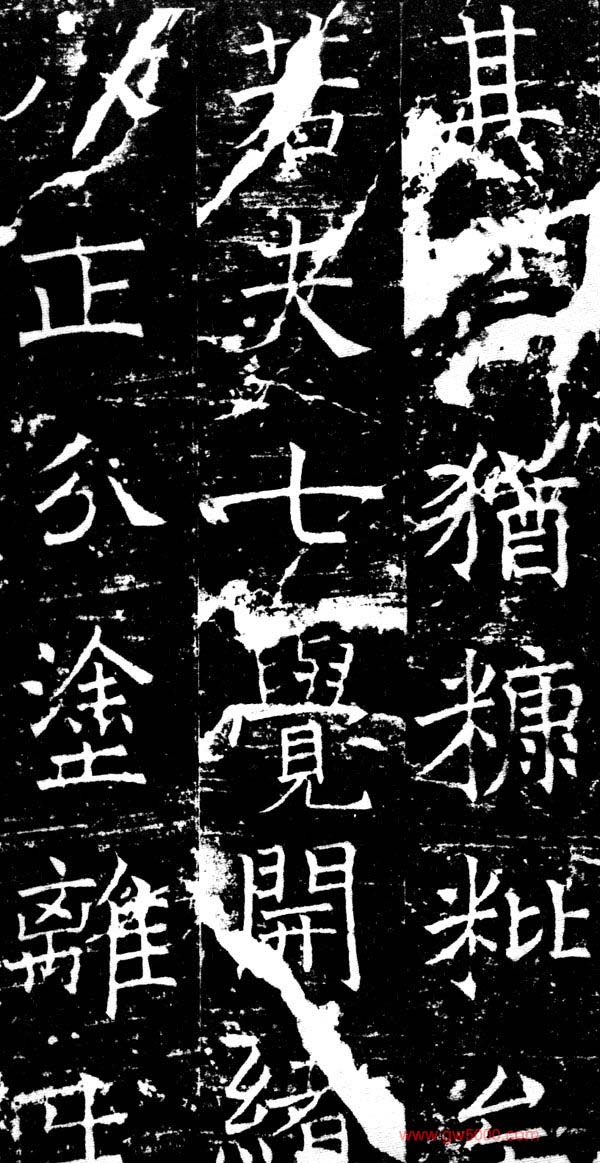 其猶糠粃
若夫七覺開緒
八正分塗離
www.gw5000.com